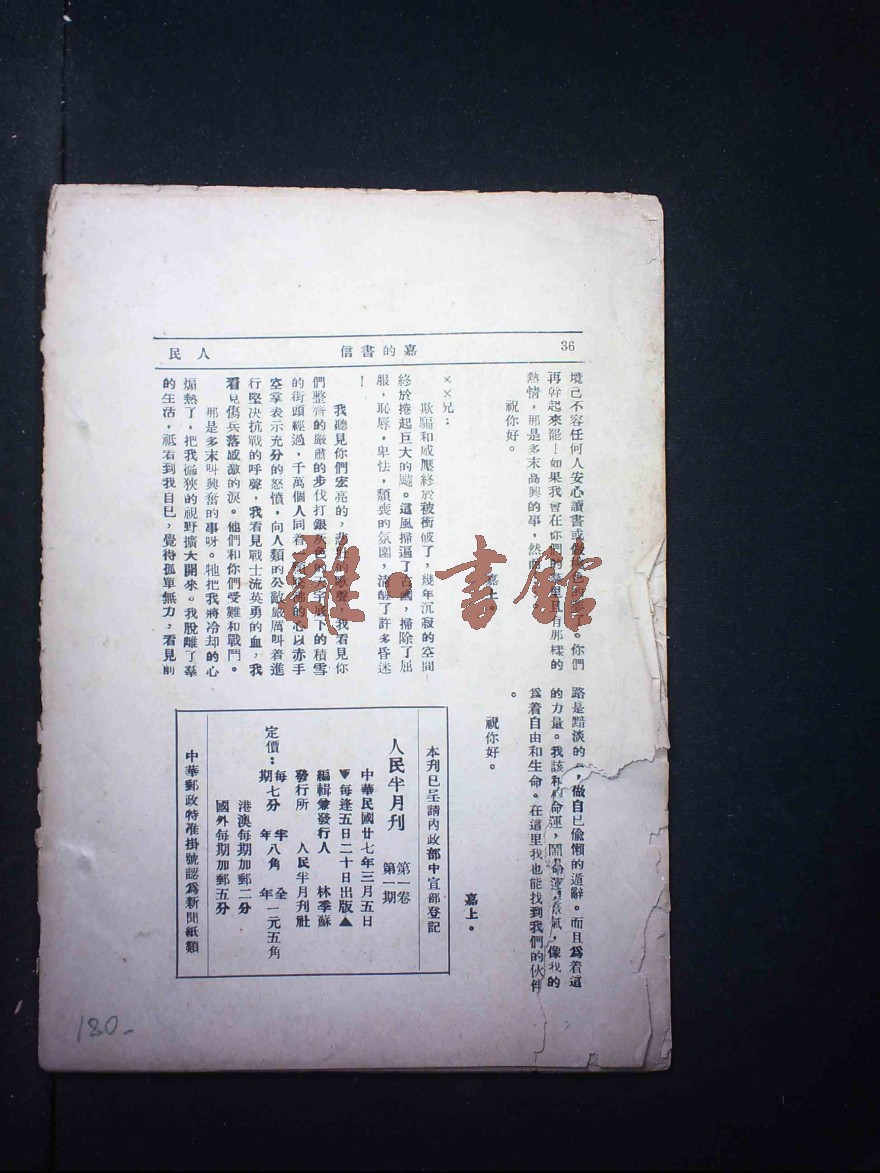 36
嘉的書信
人民
境已不容任何人安心讀書或做
了。你們
再幹起來罷！如果我會在你們的
且有那樣的
熱情，那是多末高興的事，然而
祝你好。
嘉上。
××兄：
欺騙和威壓終於被衝破了，幾年沉寂的空間
終於捲起巨大的颶。這風掃遍了古國，掃除了屈
服，恥辱，卑怯，頹喪的氛圍，清醒了許多昏迷
！
我聽見你們宏亮的，悲壯的歌聲，我看見你
們整齊的嚴肅的步伐打銀灰色的天宇底下的積雪
的街頭經過，千萬個人同着
的心以赤手
空拳表示充分的怒憤，向人類的公敵嚴厲叫着進
行堅决抗戰的呼聲，我看見戰士流英勇的血，我
看見傷兵落感激的淚。他們和你們受難和戰鬥。
那是多末叫興奮的事呀。牠把我將冷却的心
煽熱了，把我偏狹的視野擴大開來。我脫離了羣
的生活，祇看到我自己，覺得孤單無力，看見前
路是黯淡的
，做自己偷懶的遁辭。而且爲着這
的力量。我該和
命運，鬪
，像我的
爲着自由和生命。在這里我也能找到我們的伙伴
。
祝你好。
嘉上。
本刊已呈請內政部中宣部登記
人民半月刊
第一卷
第一期
中華民國廿七年三月五日
▼每逢五日二十日出版▲
編輯兼發行人 林季蘇
發行所 人民半月刊社
定價：每期七分 半年八角 全年一元五角
港澳每期加郵二分
國外每期加郵五分
中華郵政特准掛號認爲新聞紙類
雅·書館
180-